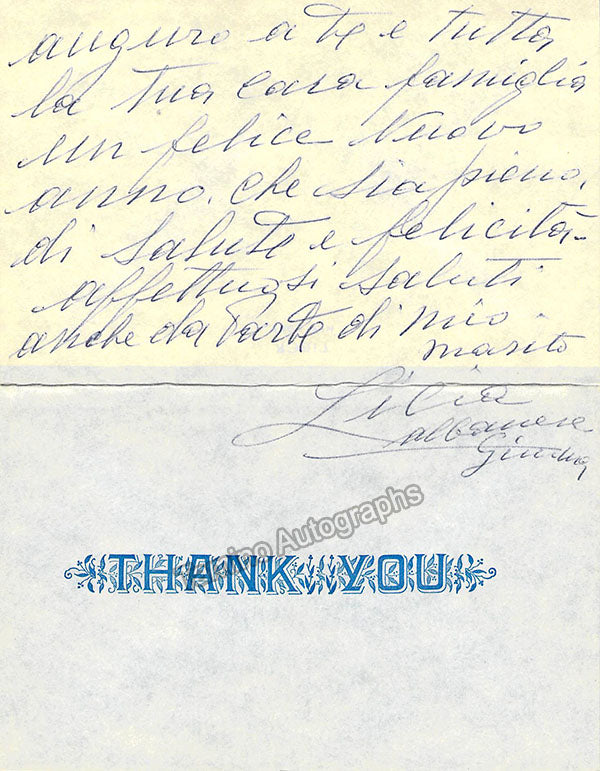 auguro a te e tutta
la tua cara famiglia
un felice Nuovo
anno. che sia pieno,
di salute e felicità-
affettuosi saluti
anche da parte di mio
marito
Licia
Albanese
Gimma
Tamino Autographs
THANK YOU